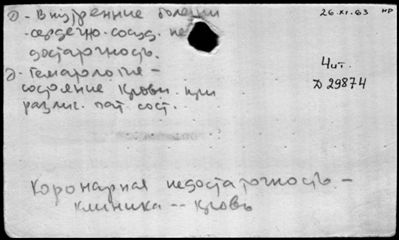 1) - Внутренние болезни
26.XI.63 НР
-сердечно-сосуд. не
достаточность.
2) - Гематология -
Чит.
состояние крови при
Д 29874
различ. пат. сост.
Коронарная недостаточность -
клиника -- кровь